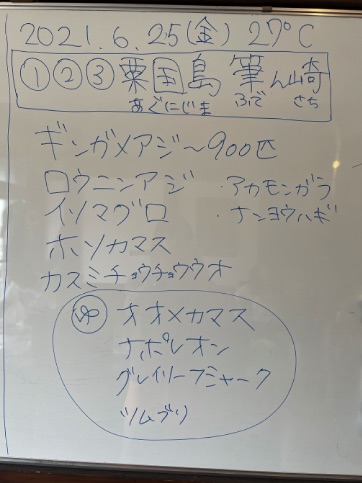 2021.6.25(金) 27°C
①②③粟国島 筆ん崎
あぐにじま ふで さち
ギンガメアジ～900匹
ロウニンアジ ・アカモンガラ
イソマグロ ・ナンヨウハギ
ホソカマス
カスミチョウチョウウオ
オオメカマス
ナポレオン
グレイリーフシャーク
ツムブリ